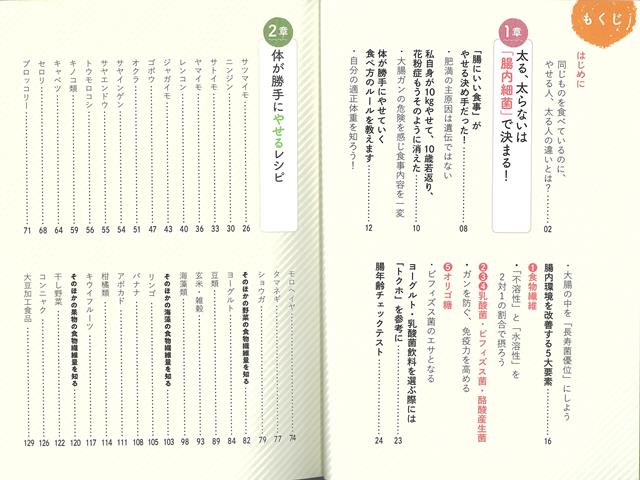 もくじ
はじめに
同じものを食べているのに、
やせる人、太る人の違いとは? 02
1章
太る、太らないは
「腸内細菌」で決まる!
「腸にいい食事」が
やせる決め手だった! 08
・肥満の主原因は遺伝ではない
私自身が10kgやせて、10歳若返り、
花粉症もうそのように消えた 10
・大腸ガンの危険を感じ食事内容を一変
体が勝手にやせていく
食べ方のルールを教えます 12
・自分の適正体重を知ろう!
・大腸の中を「長寿菌優位」にしよう
腸内環境を改善する5大要素 16
❶食物繊維
・「不溶性」と「水溶性」を
2対1の割合で摂ろう
❷❸❹乳酸菌・ビフィズス菌・酪酸産生菌
・ガンを防ぐ、免疫力を高める
❺オリゴ糖
・ビフィズス菌のエサとなる
ヨーグルト・乳酸菌飲料を選ぶ際には
「トクホ」を参考に 23
腸年齢チェックテスト 24
2章
体が勝手にやせるレシピ
サツマイモ 26
ニンジン 30
サトイモ 33
ヤマイモ 36
レンコン 40
ジャガイモ 43
ゴボウ 47
オクラ 51
サヤインゲン 54
サヤエンドウ 55
トウモロコシ 56
キノコ類 59
キャベツ 64
セロリ 68
ブロッコリー 71
モロヘイヤ 74
タマネギ 77
ショウガ 79
そのほかの野菜の食物繊維量を知る 82
ヨーグルト 84
豆類 89
玄米・雑穀 93
海藻類 98
そのほかの海藻の食物繊維量を知る 103
リンゴ 105
バナナ 108
アボカド 111
柑橘類 114
キウイフルーツ 117
そのほかの果物の食物繊維量を知る 120
干し野菜 122
コンニャク 126
大豆加工食品 129